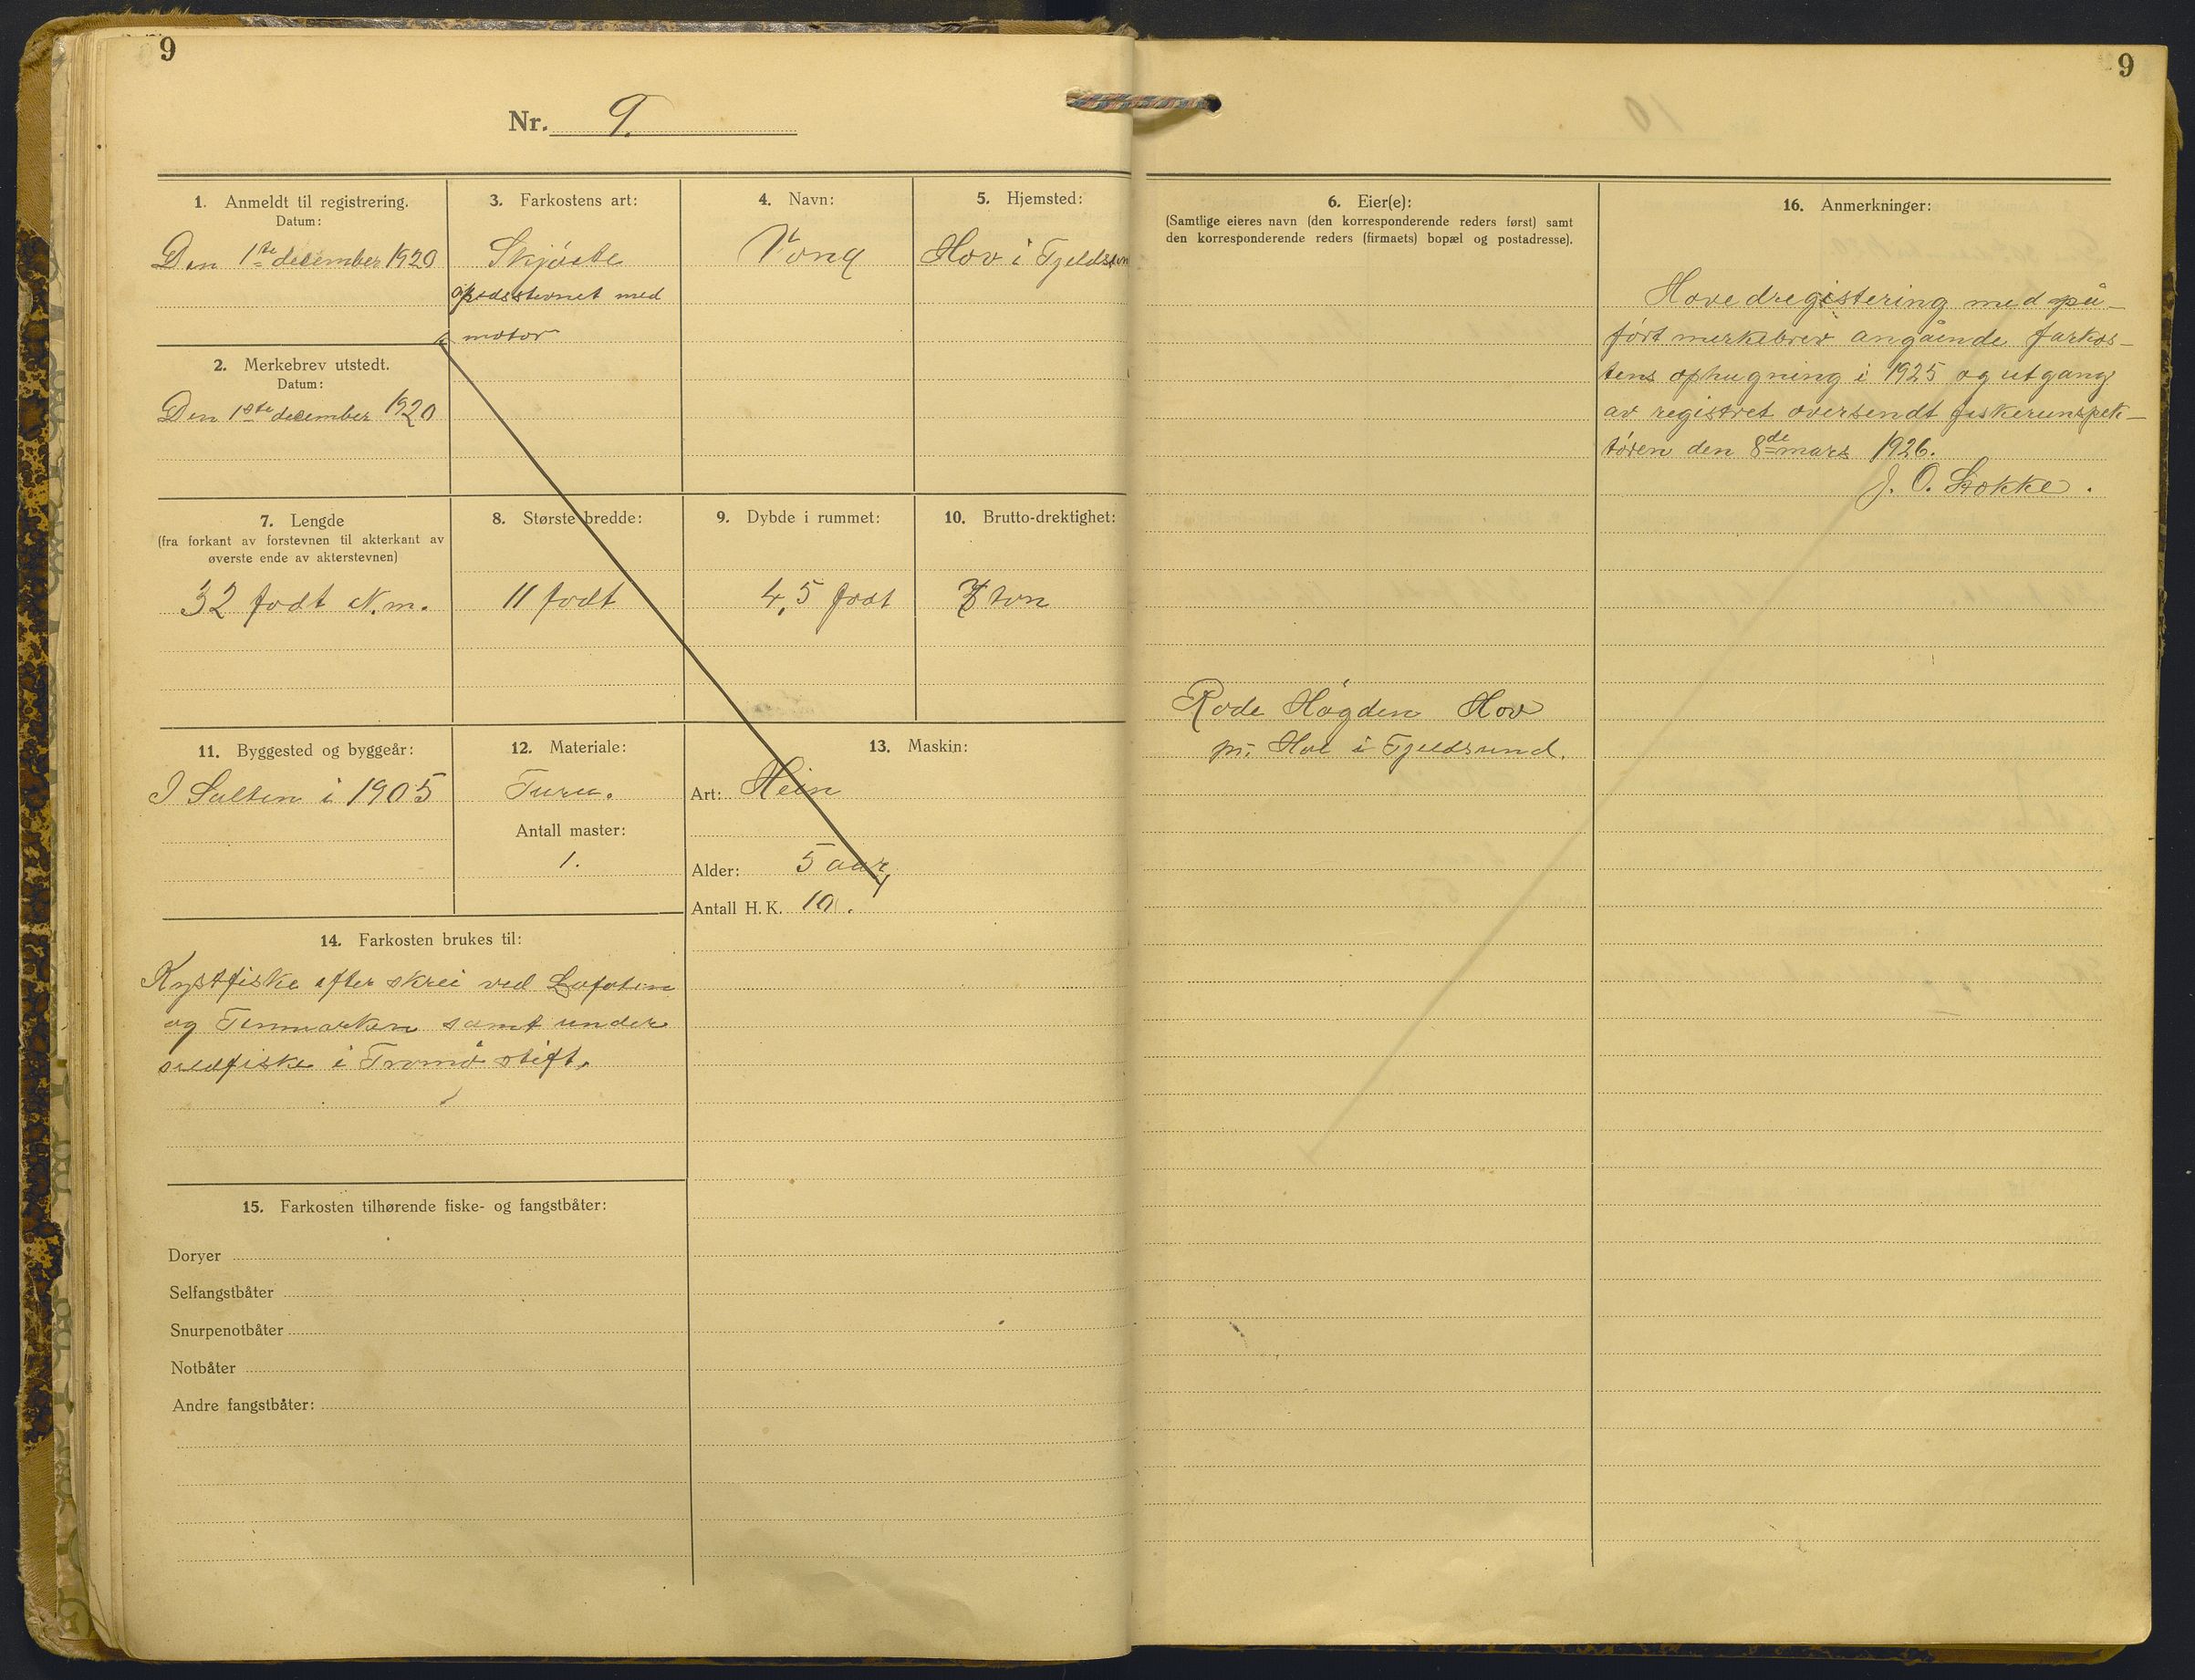 9
Nr. 9.
1. Anmeldt til registrering.
Datum:
Den 1ste december 1920
2. Merkebrev utstedt.
Datum:
Den 1ste december 1920
3. Farkostens art:
Skjøite
spidsstevnet med
motor
4. Navn:
5. Hjemsted:
Hov i Tjeldsun
7. Lengde
(fra forkant av forstevnen til akterkant av
øverste ende av akterstevnen)
32 fodt N.m.
8. Største bredde:
11 fodt
9. Dybde i rummet:
4,5 fodt
10. Brutto-drektighet:
ton
11. Byggested og byggeår:
I Salten i 1905
12. Materiale:
Furu.
Antall master:
1.
13. Maskin:
Art: Hein
Alder: 5 aar
Antall H.K. 10.
14. Farkosten brukes til:
Kystfiske efter skrei ved Lofoten
og Finmarken samt under
sildfiske i Tromsø stift.
15. Farkosten tilhørende fiske- og fangstbåter:
Doryer
Selfangstbåter
Snurpenotbåter
Notbåter
Andre fangstbåter:
9
6. Eier(e):
(Samtlige eieres navn (den korresponderende reders først) samt
den korresponderende reders (firmaets) bopæl og postadresse).
Høgden Hov
pr. Hol i Tjeldsund.
16. Anmerkninger:
Hovedregistering med på-
ført merkebrev angående farkos-
tens ophugning i 1925 og utgang
av registret oversendt fiskeriinspek-
tøren den 8de mars 1926.
J. O. Stokke.